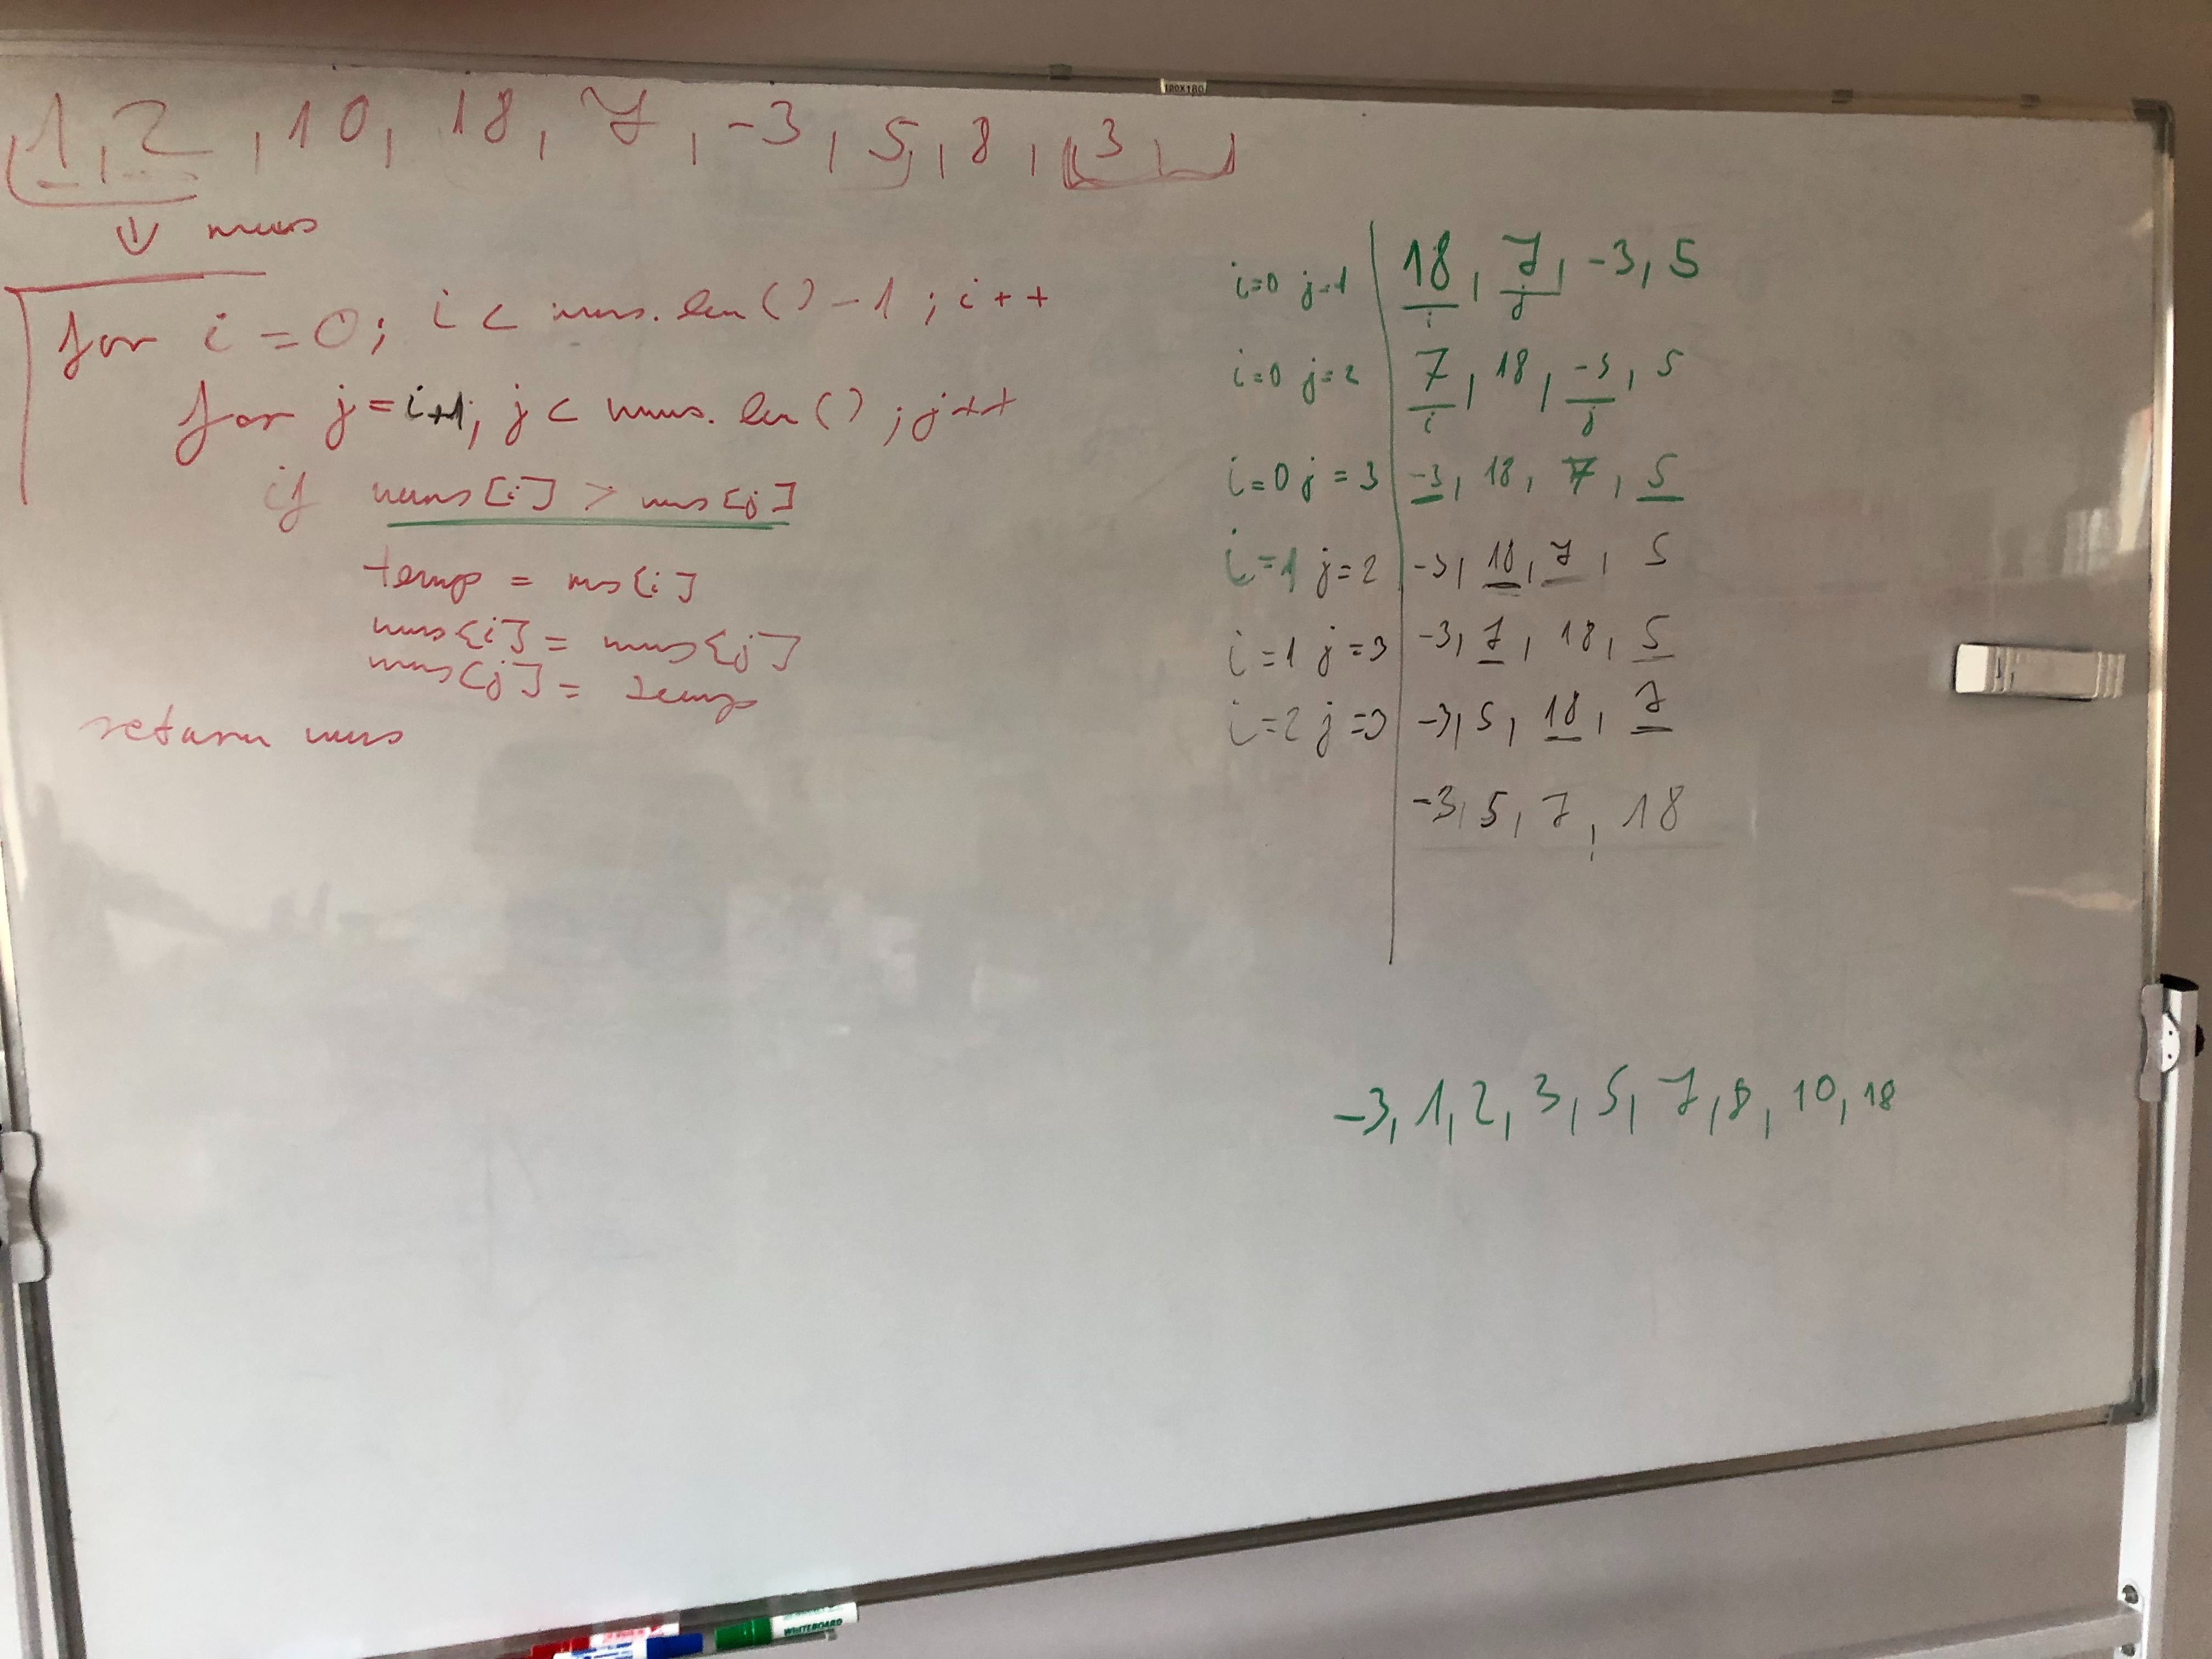 120X180
1, 2, 10, 18, 7, -3, 5, 8, 3
nums
for i = 0; i < nums.len() - 1; i++
for j = i+1; j < nums.len(); j++
if nums[i] > nums[j]
temp = nums[i]
nums[i] = nums[j]
nums[j] = temp
return nums
i=0 j=1 18, 7, -3, 5
i j
i=0 j=2 7, 18, -3, 5
i j
i=0 j=3 -3, 18, 7, 5
i=1 j=2 -3, 18, 7, 5
i=1 j=3 -3, 7, 18, 5
i=2 j=3 -3, 5, 18, 7
-3, 5, 7, 18
-3, 1, 2, 3, 5, 7, 8, 10, 18
WHITEBOARD